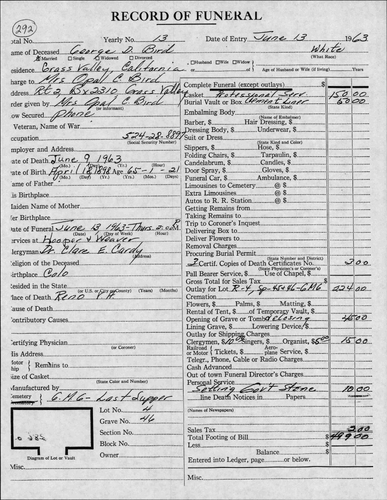 RECORD OF FUNERAL
292
Total No. Yearly No. 13 Date of Entry June 13 1963
Name of Deceased George D. Bird White
Married Single Widowed Divorced Husband Wife Widow (What Race)
Residence Grass Valley, California Age of Husband or Wife (if living) Years
Charge to Mrs Opal C. Bird Complete Funeral (except outlays) $
Address Rt 2, Bx 2310 Grass Valley Casket Professional Serv 150.00
Order given by Mrs Opal C. Bird Burial Vault or Box Cement Liner 60.00
How Secured Phone Embalming Body (State Kind)
Veteran, Name of War Barber, $ Hair Dressing, $
Occupation 524-28-8897 Dressing Body, $ Underwear, $
Employer and Address Suit or Dress (State Kind and Color)
Slippers, $ Hose, $
Date of Death June 9, 1963 Folding Chairs, $ Tarpaulin, $
Date of Birth April 18, 1898 Age 65-1-21 Candelabrum, $ Candles, $
Name of Father Door Spray, $ Gloves, $
His Birthplace Funeral Car, $ Ambulance, $
Maiden Name of Mother Limousines to Cemetery @ $
Her Birthplace Extra Limousines @ $
Date of Funeral June 13 1963-Thurs. 2:00 P.M. Autos to R. R. Station @ $
Services at Hooper & Weaver Getting Remains from
Clergyman Dr. Clare E. Cardy Taking Remains to
Religion of the Deceased Trip to Coroner's Inquest
Birthplace Colo Delivering Box to
Resided in the State Deliver Flowers to
Place of Death Reno V.A. Removal Charges
Cause of Death Procuring Burial Permit
Contributory Causes 2 Certif. Copies of Death Certificates No. 2.00
Certifying Physician Pall Bearer Service, $ Use of Chapel, $
His Address Gross Total for Sales Tax $
Outlay for Lot R-4, Sp-45&46-GMG 224.00
Cremation
Flowers, $ Palms, $ Matting, $
Rental of Tent, $ of Temporary Vault, $
Opening of Grave or Tomb & closing 45.00
Lining Grave, $ Lowering Device $
Outlay for Shipping Charges
Clergymen, $10.00 Singers, $ Organist, $5.00 15.00
Railroad or Motor Tickets, $ Aeroplane Service, $
Telegr., Phone, Cable or Radio Charges
Cash Advanced
Size of Casket Out of town Funeral Director's Charges
Manufactured by Personal Service
Cemetery G.M.G - Last Supper Setting Govt Stone 10.00
Lot No. 4 line Death Notices in Papers
Grave No. 46 (Names of Newspapers)
Section No. Sales Tax 3.00
Block No. Total Footing of Bill $499.00
Owner Less
Balance
Diagram of Lot or Vault Entered into Ledger, page or below.
Misc. Misc.